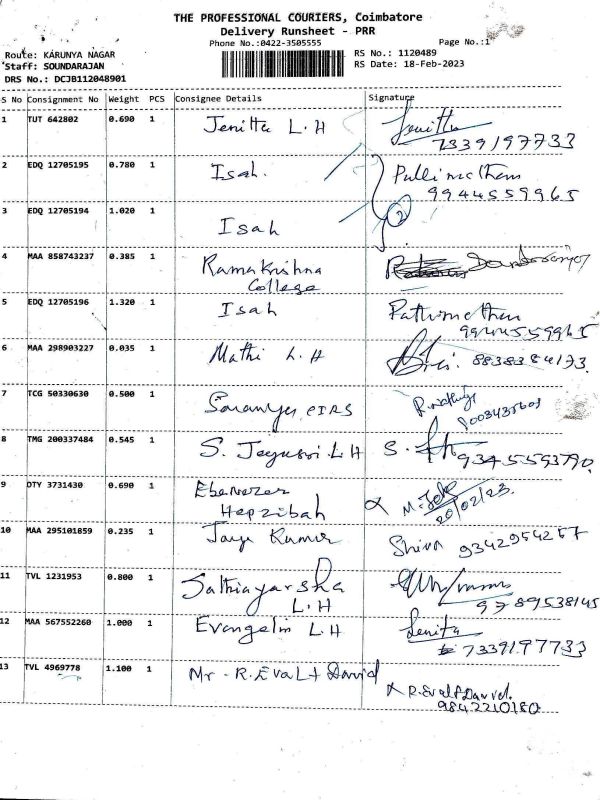 THE PROFESSIONAL COURIERS, Coimbatore
Delivery Runsheet - PRR
Phone No.:0422-3505555
Page No.:1
Route: KARUNYA NAGAR
Staff: SOUNDARAJAN
DRS No.: DCJB112048901
RS No.: 1120489
RS Date: 18-Feb-2023
S No Consignment No Weight PCS Consignee Details Signature
1 TUT 642802 0.690 1 Jenitta L.H Jenitta
7339197733
2 EDQ 12705195 0.780 1 Isah.
9944559965
3 EDQ 12705194 1.020 1 Isah 2
4 MAA 858743237 0.385 1 Ramakrishna
College
5 EDQ 12705196 1.320 1 Isah
9944559965
6 MAA 298903227 0.035 1 Mathi L.H 8838384173.
7 TCG 50330630 0.500 1
8 TMG 200337484 0.545 1 S. L.H S.
9345593790.
9 DTY 3731430 0.690 1 Ebenezer
Hepzibah
20/02/23.
10 MAA 295101859 0.235 1 Jaya Kumar Shiva 9342954257
11 TVL 1231953 0.800 1
L.H 9789538145
12 MAA 567552260 1.000 1 Evangelin L.H Jenita
7339197733
13 TVL 4969778 1.100 1 Mr. R. David
9842210180